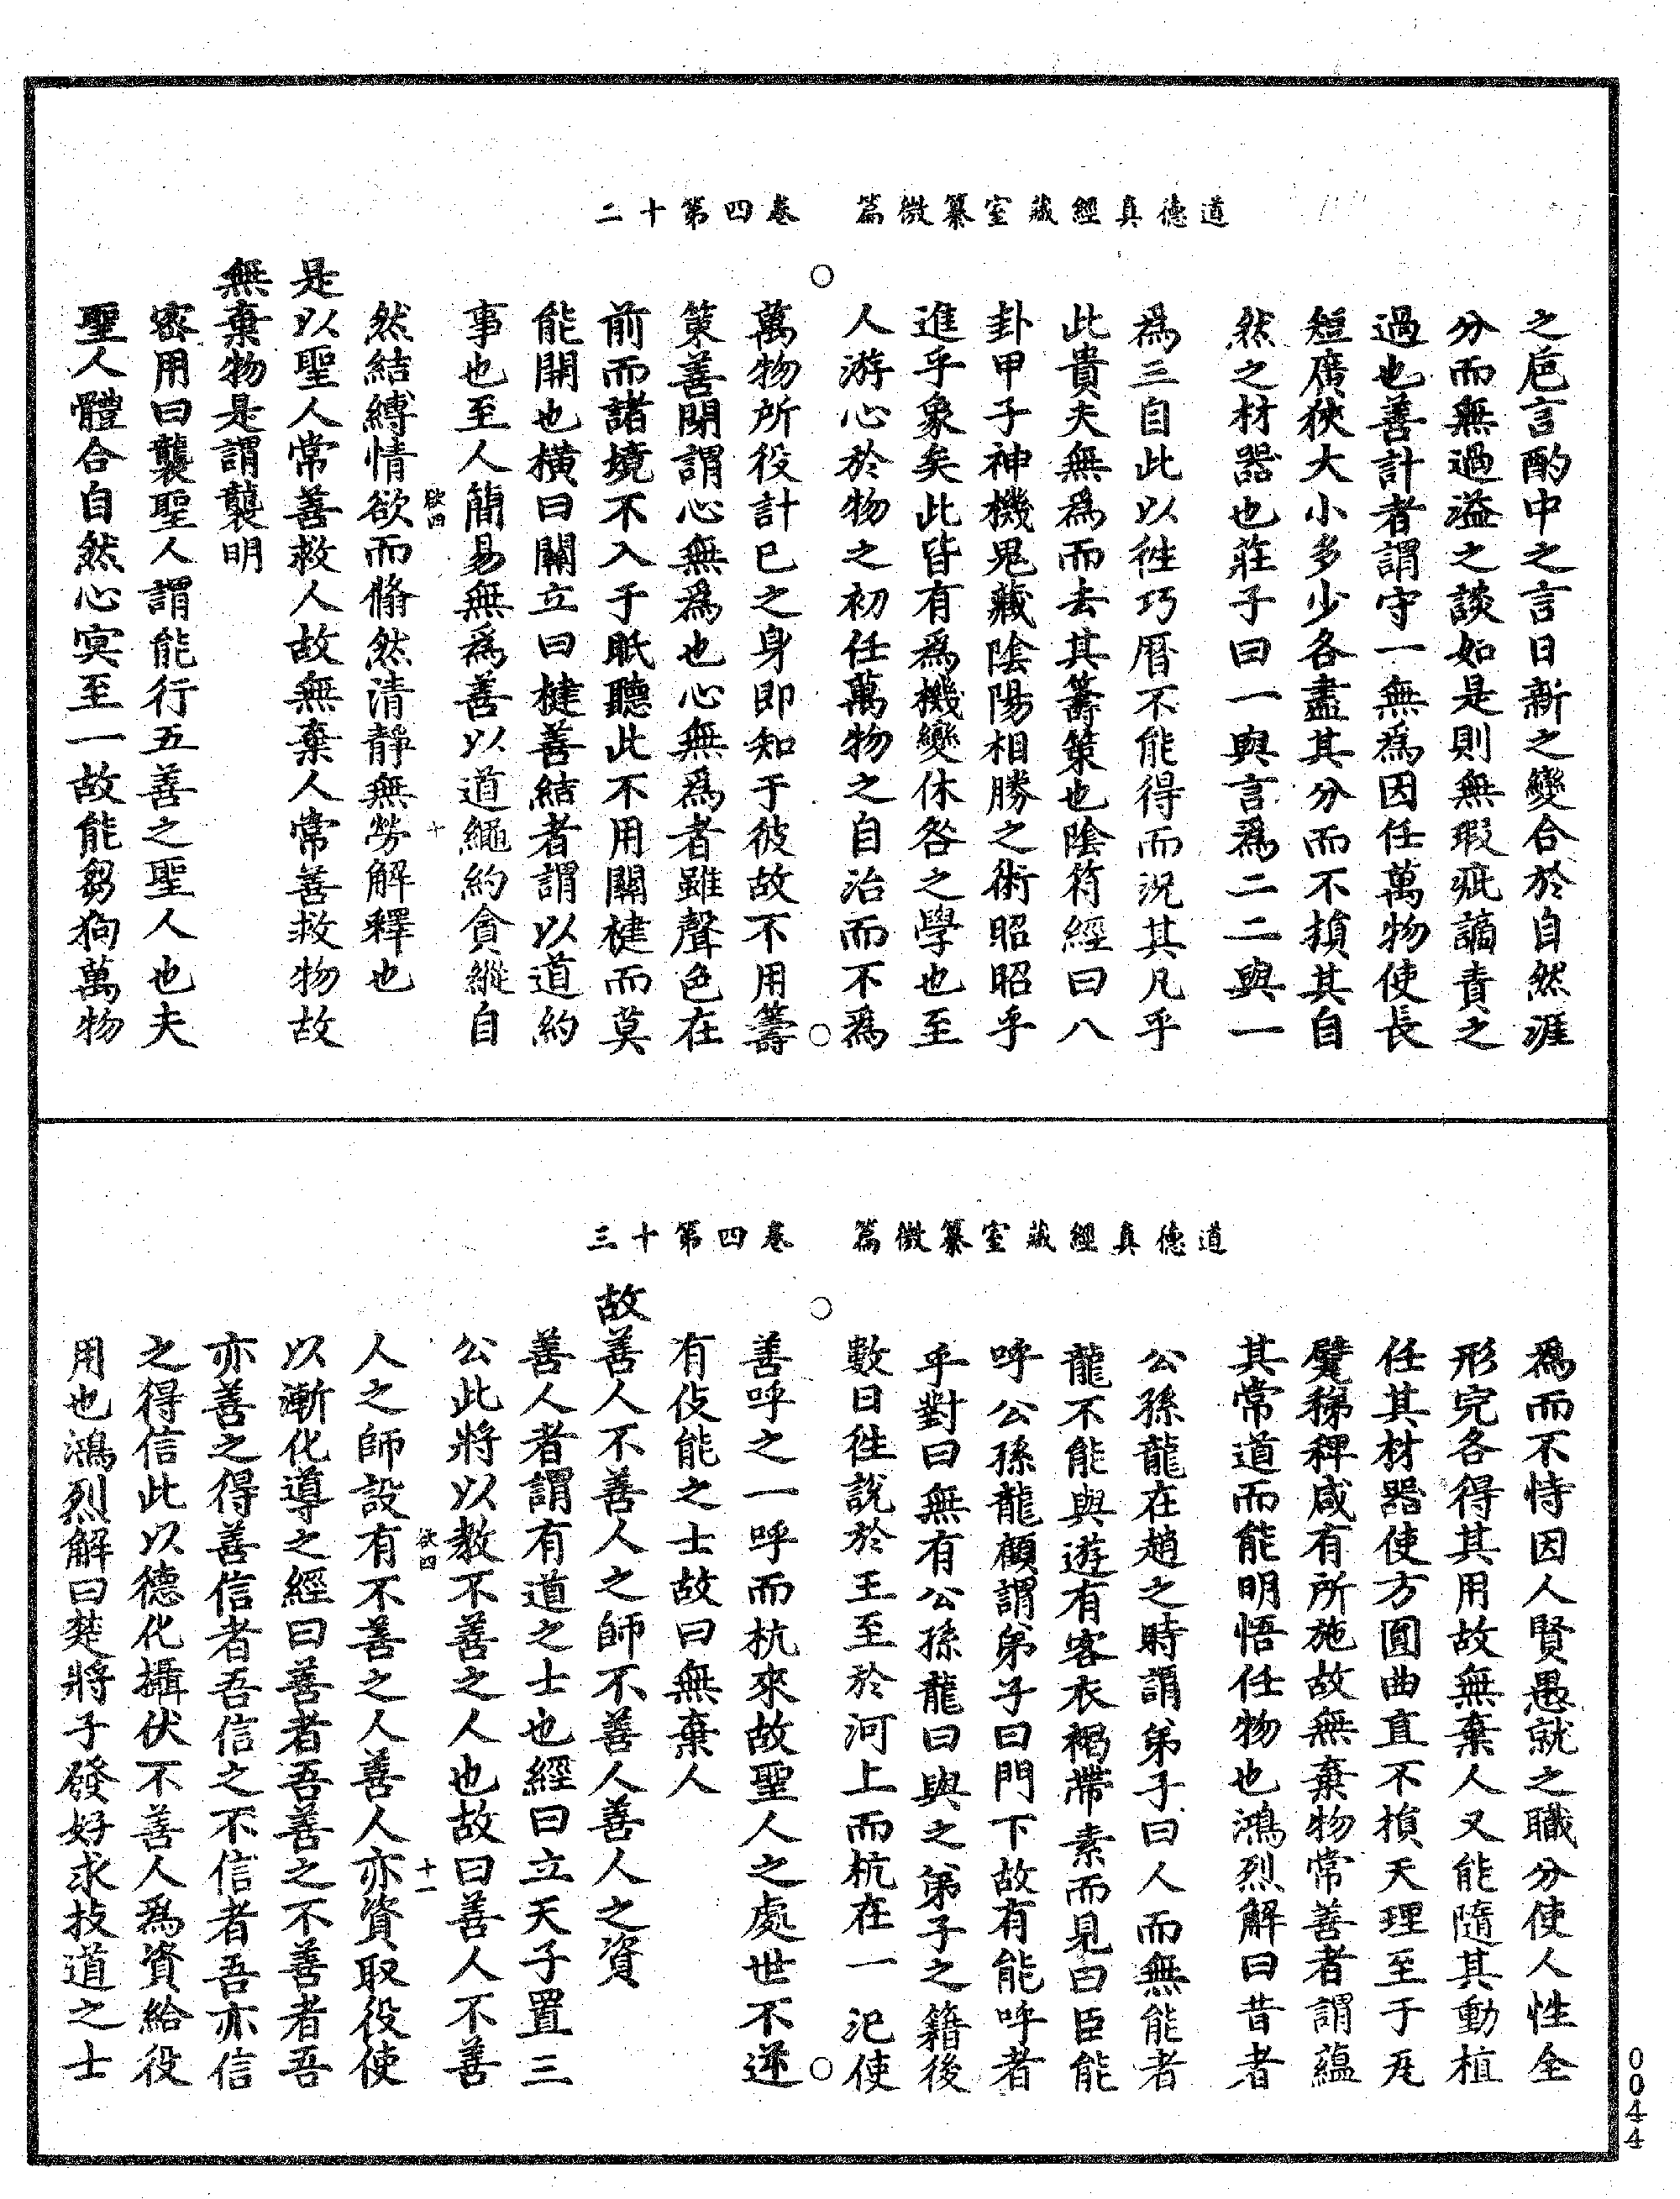 道德真經藏室纂微篇　卷四第十二
之巵言酌中之言日新之變合於自然涯
分而無過溢之談如是則無瑕疵讁責之
過也善計者謂守一無為因任萬物使長
短廣狹大小多少各盡其分而不損其自
然之材器也莊子曰一與言爲二二與一
爲三自此以徃巧曆不能得而況其凡乎
此貴夫無爲而去其籌策也陰符經曰八
卦甲子神機鬼藏陰陽相勝之術昭昭乎
進乎象矣此皆有爲機變休咎之學也至
人游心於物之初任萬物之自治而不爲
萬物所役計已之身即知于彼故不用籌
策善閉謂心無爲也心無爲者雖聲色在
前而諸境不入于眂聽此不用關楗而莫
能開也橫曰關立曰楗善結者謂以道約
事也至人簡易無爲善以道繩約貪縱自
然結縛情欲而翛然清靜無勞解釋也
欲四　十
是以聖人常善救人故無棄人常善救物故
無棄物是謂襲明
密用曰襲聖人謂能行五善之聖人也夫
聖人體合自然心冥至一故能芻狗萬物
道德真經藏室纂微篇　卷四第十三
爲而不恃因人賢愚就之職分使人性全
形完各得其用故無棄人又能隨其動植
任其材器使方圓曲直不損天理至于瓦
甓稊稗咸有所施故無棄物常善者謂蘊
其常道而能明悟任物也鴻烈解曰昔者
公孫龍在趙之時謂弟子曰人而無能者
龍不能與遊有客衣褐帶素而見曰臣能
呼公孫龍顧謂弟子曰門下故有能呼者
乎對曰無有公孫龍曰與之弟子之籍後
數日徃說於王至於河上而杭在一汜使
善呼之一呼而杭來故聖人之處世不逆
有伎能之士故曰無棄人
故善人不善人之師不善人善人之資
善人者謂有道之士也經曰立天子置三
公此將以教不善之人也故曰善人不善
欲四　十一
人之師設有不善之人善人亦資取役使
以漸化導之經曰善者吾善之不善者吾
亦善之得善信者吾信之不信者吾亦信
之得信此以德化攝伏不善人爲資給役
用也鴻烈解曰楚將子發好求技道之士
0044